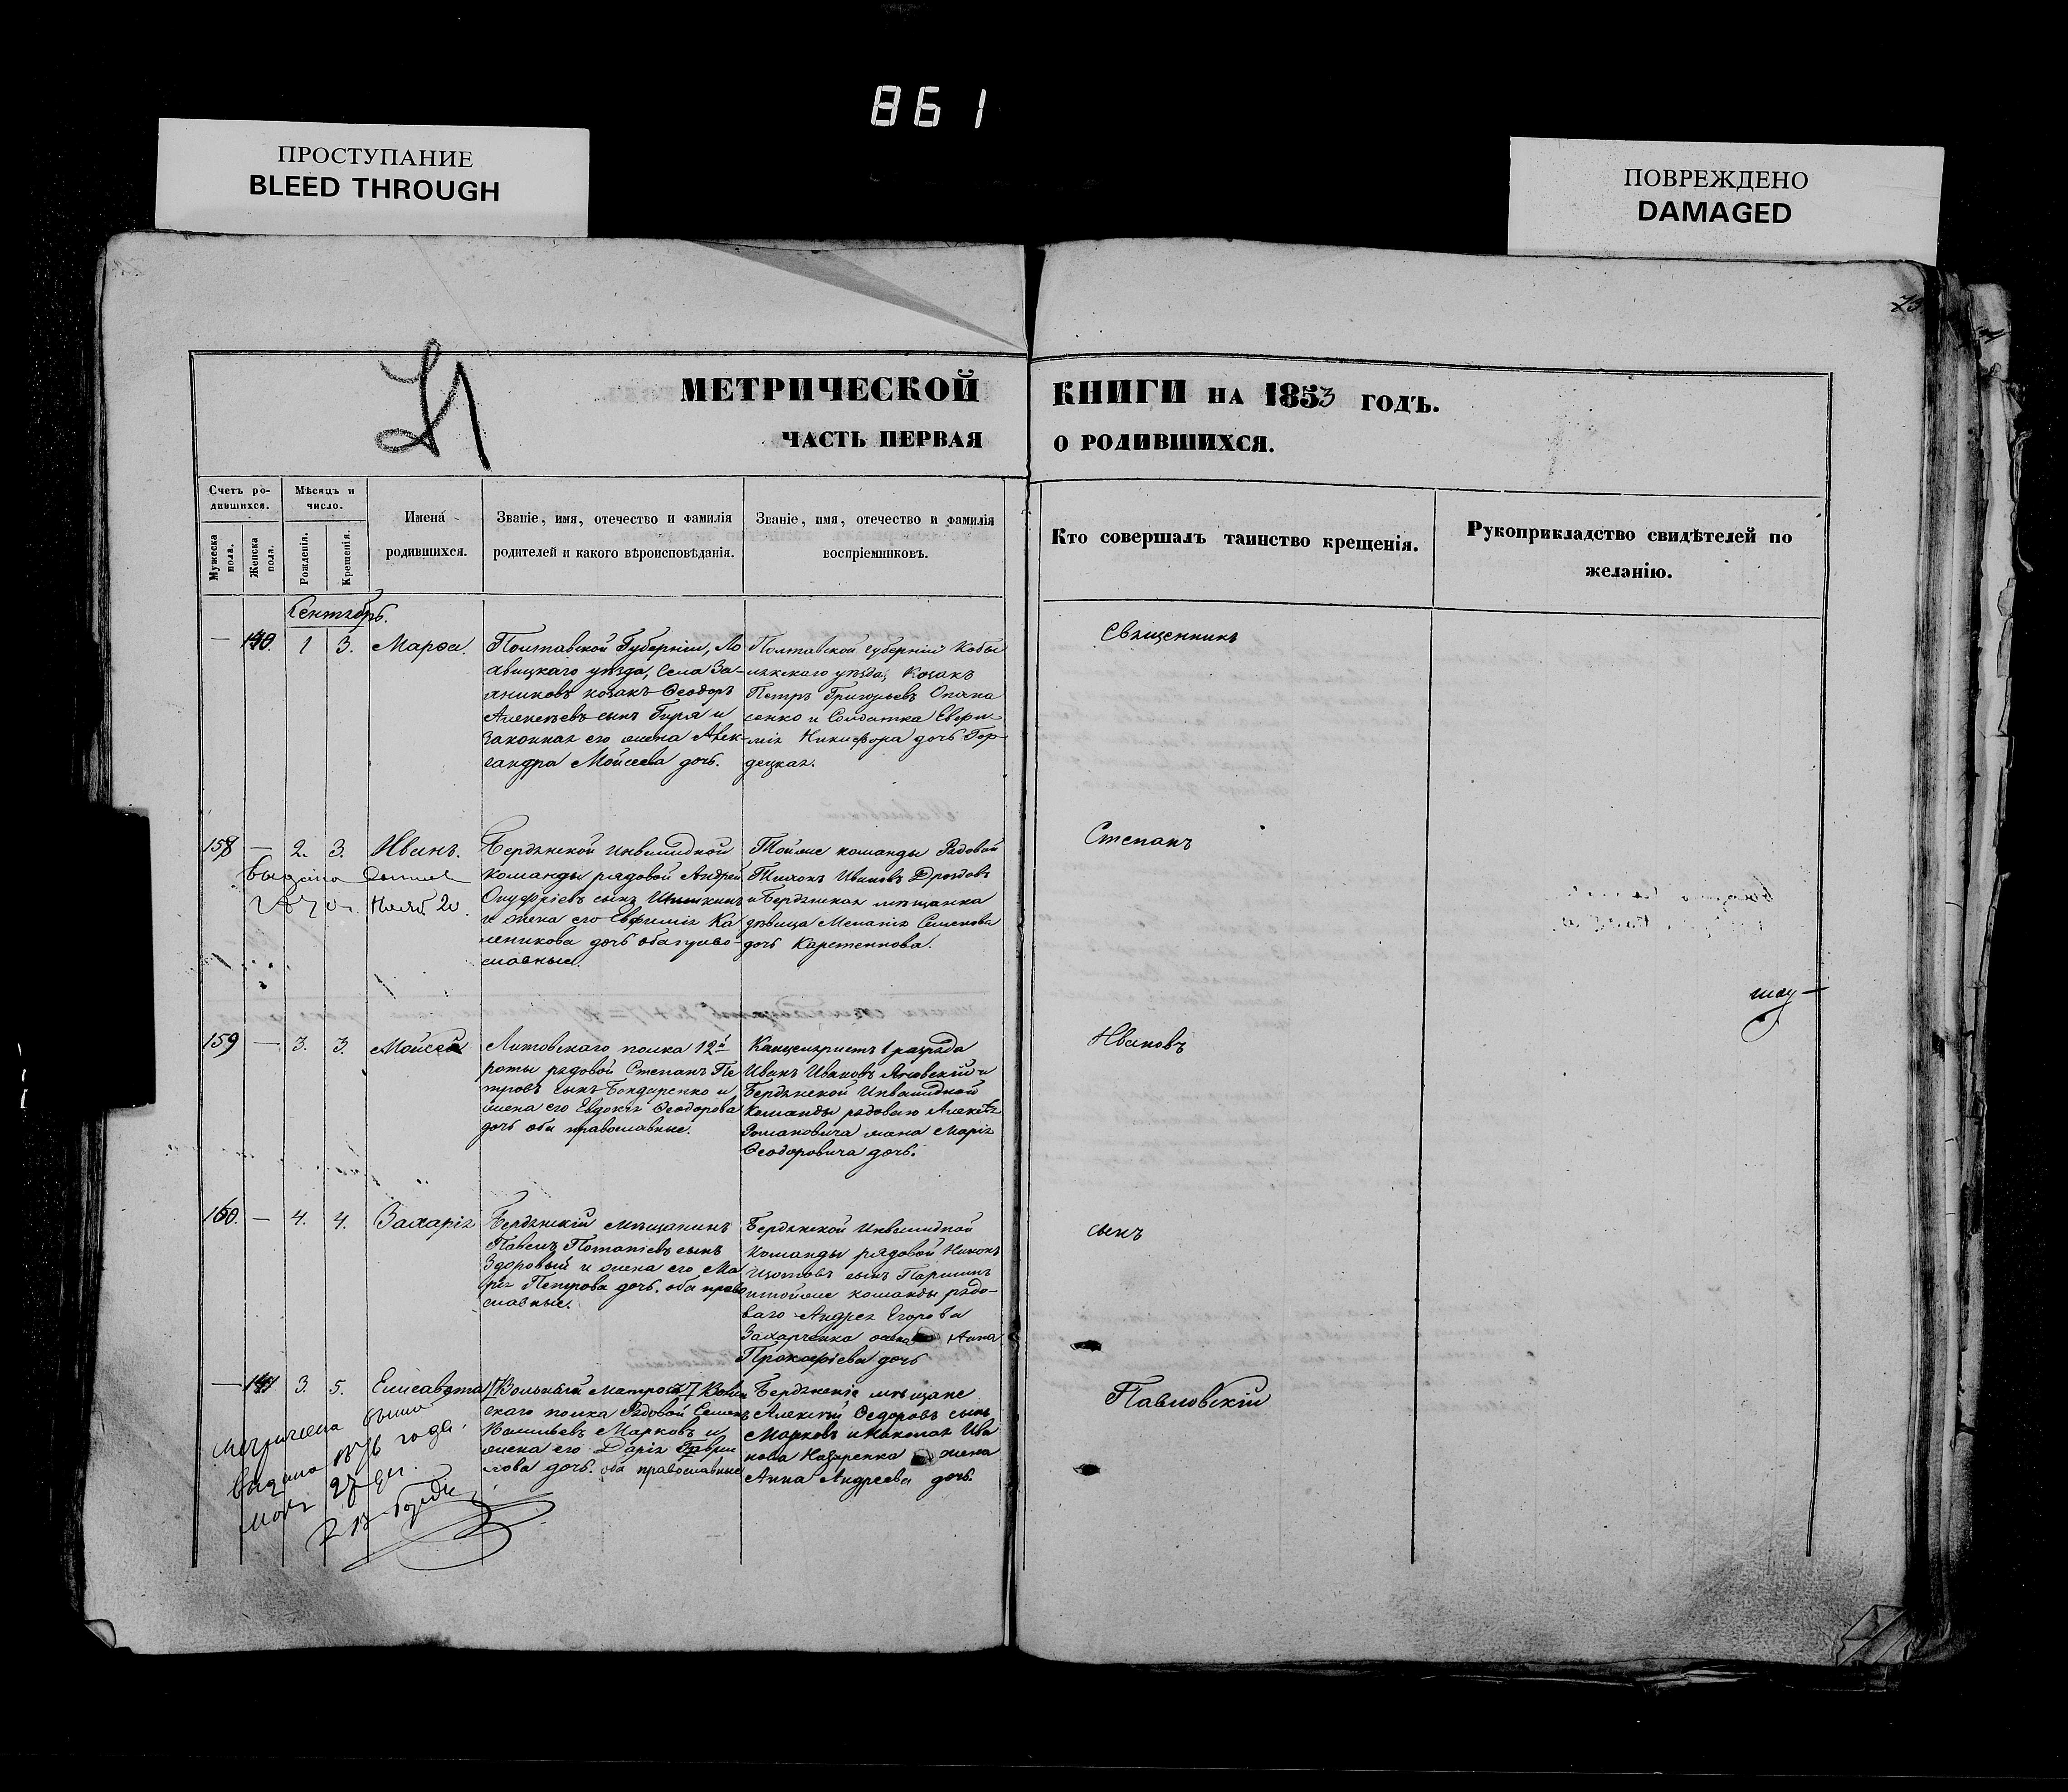 861
ПРОСТУПАНИЕ
BLEED THROUGH
ПОВРЕЖДЕНО
DAMAGED
73
МЕТРИЧЕСКОЙ КНИГИ НА 1853 ГОДЪ.
ЧАСТЬ ПЕРВАЯ О РОДИВШИХСЯ.
Счетъ ро-
дившихся.
Мужеска
пола.
Женска
пола.
Мѣсяцъ и
число.
Рожденія.
Крещенія.
Имена
родившихся.
Званіе, имя, отечество и фамилія
родителей и какого вѣроисповѣданія.
Званіе, имя, отечество и фамилія
воспріемниковъ.
Кто совершалъ таинство крещенія.
Рукоприкладство свидѣтелей по
желанію.
Сентябрь.
— 140. 1 3. Марѳа.
Полтавской Губерніи, Ло
хвицкаго уѣзда, Села
козакъ Ѳеодоръ
Алексѣевъ сынъ Гиря и
законная его жена Алек-
сандра Мойсеева дочь.
Полтавской губерніи Кобы
лякскаго уѣзда, Козакъ
Петръ Григорьевъ Опана
сенко и Солдатка Евѳи-
мія Никифора дочь Гор-
децкая.
Священникъ
158 — 2. 3. Иванъ.
выдано
Нояб. 20
Бердянской инвалидной
команды рядовой Андрей
Онуфріевъ сынъ
и жена его Евфимія Ка
леникова дочь оба право-
славные.
Тойже команды Рядовой
Тихонъ Ивановъ Дроздовъ
и Бердянская мѣщанка
дѣвица Меланія Семенова
дочь Карстеннова.
Степанъ
159 — 3. 3. Мойсей
Литовскаго полка 12й
роты рядовой Степанъ Пе
тровъ сынъ Бондаренко и
жена его Евдокія Ѳеодорова
дочь оба православные.
Канцеляристъ 1 разряда
Иванъ Ивановъ Яновскій и
Бердянской Инвалидной
Команды рядоваго Алексѣя
Романовича жена Марія
Ѳеодоровича дочь.
Ивановъ
160. — 4. 4. Захарія
Бердянскій мѣщанинъ
Павелъ Потапіевъ сынъ
Здоровый и жена его Ма
рія Петрова дочь. оба право
славные.
Бердянской Инвалидной
команды рядовой Никонъ
сынъ Паршинъ
итойже команды рядо-
ваго Андрея Егорова
Захарченка жена Анна
Прокофіева дочь
сынъ
— 141 3. 5. Елисавета
Вольный матросъ
скаго полка Рядовой Семенъ
Васильевъ Марковъ и
жена его Дарія Гаври
лова дочь. оба православные
Бердянскіе мѣщане
Алексѣй Ѳедоровъ сынъ
Марковъ и Николая Ива
нова Назаренка жена
Анна Андреева дочь.
Павловскій
выдано 1876 года.
27